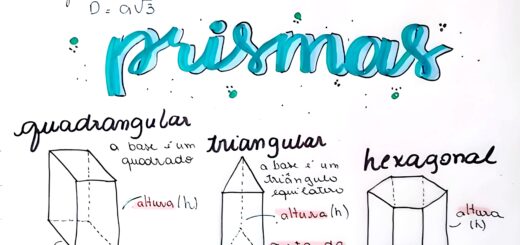 D = a√3
prismas
quadrangular
a base é um
quadrado
altura (h)
triangular
a base é um
triângulo
equilátero
altura (h)
hexagonal
altura
(h)